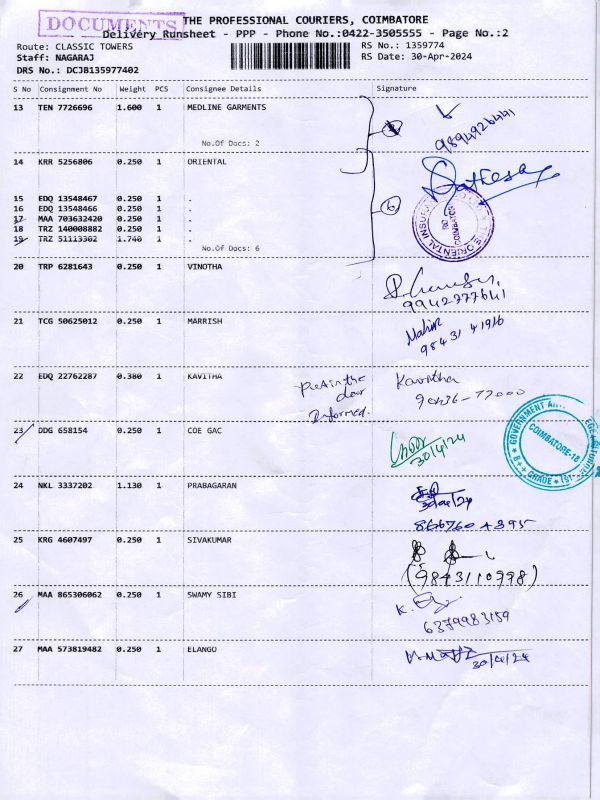 DOCUMENTS
THE PROFESSIONAL COURIERS, COIMBATORE
Delivery Runsheet - PPP - Phone No.:0422-3505555 - Page No.:2
Route: CLASSIC TOWERS
RS No.: 1359774
Staff: NAGARAJ
RS Date: 30-Apr-2024
DRS No.: DCJB135977402
S No Consignment No Weight PCS Consignee Details Signature
13 TEN 7726696 1.600 1 MEDLINE GARMENTS
9894926441
No.Of Docs: 2
14 KRR 5256806 0.250 1 ORIENTAL
15 EDQ 13548467 0.250 1 .
16 EDQ 13548466 0.250 1 .
17 MAA 703632420 0.250 1 .
18 TRZ 140008882 0.250 1 .
19 TRZ 51113302 1.740 1 .
No.Of Docs: 6
6
COIMBATORE
20 TRP 6281643 0.250 1 VINOTHA
9942777641
21 TCG 50625012 0.250 1 MARRISH
98431 41916
22 EDQ 22762287 0.380 1 KAVITHA
Put in the
door
Informed.
Kavitha
90436-77000
23 DDG 658154 0.250 1 COE GAC
30/4/24
GOVERNMENT
COIMBATORE-18
GRADE
24 NKL 3337202 1.130 1 PRABAGARAN
30/04/24
25 KRG 4607497 0.250 1 SIVAKUMAR
(9843110998)
26 MAA 865306062 0.250 1 SWAMY SIBI
6379983159
27 MAA 573819482 0.250 1 ELANGO
30/4/24